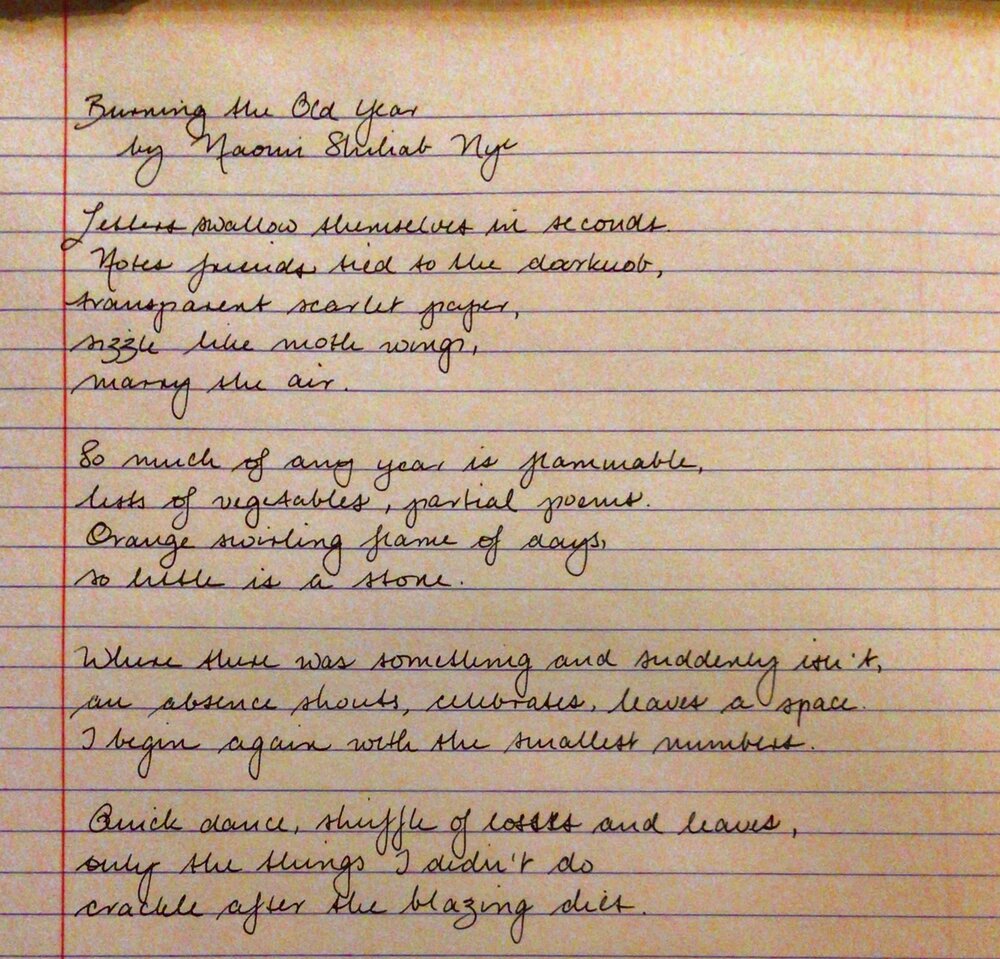 Burning the Old Year
by Naomi Shihab Nye
Letters swallow themselves in seconds.
Notes friends tied to the doorknob,
transparent scarlet paper,
sizzle like moth wings,
marry the air.
So much of any year is flammable,
lists of vegetables, partial poems.
Orange swirling flame of days,
so little is a stone.
Where there was something and suddenly isn't,
an absence shouts, celebrates, leaves a space.
I begin again with the smallest numbers.
Quick dance, shuffle of losses and leaves,
only the things I didn't do
crackle after the blazing dies.